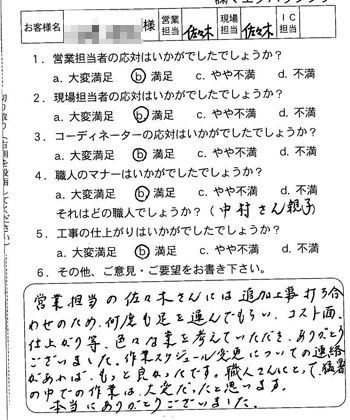 お客様名 様 営業担当 佐々木 現場担当 佐々木 IC担当
1．営業担当者の応対はいかがでしたでしょうか？
a. 大変満足 b 満足 c. やや不満 d. 不満
2．現場担当者の応対はいかがでしたでしょうか？
a. 大変満足 b. 満足 c. やや不満 d. 不満
3．コーディネーターの応対はいかがでしたでしょうか？
a. 大変満足 b 満足 c. やや不満 d. 不満
4．職人のマナーはいかがでしたでしょうか？
a. 大変満足 b. 満足 c. やや不満 d. 不満
それはどの職人でしょうか？（中村さん親子）
5．工事の仕上がりはいかがでしたでしょうか？
a. 大変満足 b. 満足 c. やや不満 d. 不満
6．その他、ご意見・ご要望をお書き下さい。
営業担当の佐々木さんには追加工事打ち合
わせのため、何度も足を運んでもらい、コスト面、
仕上がり等、色々な案を考えていただき、ありがとう
ございました。作業スケジュール変更についての連絡
があれば、もっと良かったです。職人さんにとって、猛暑
の中での作業は、大変だったと思います。
本当にありがとうございました。